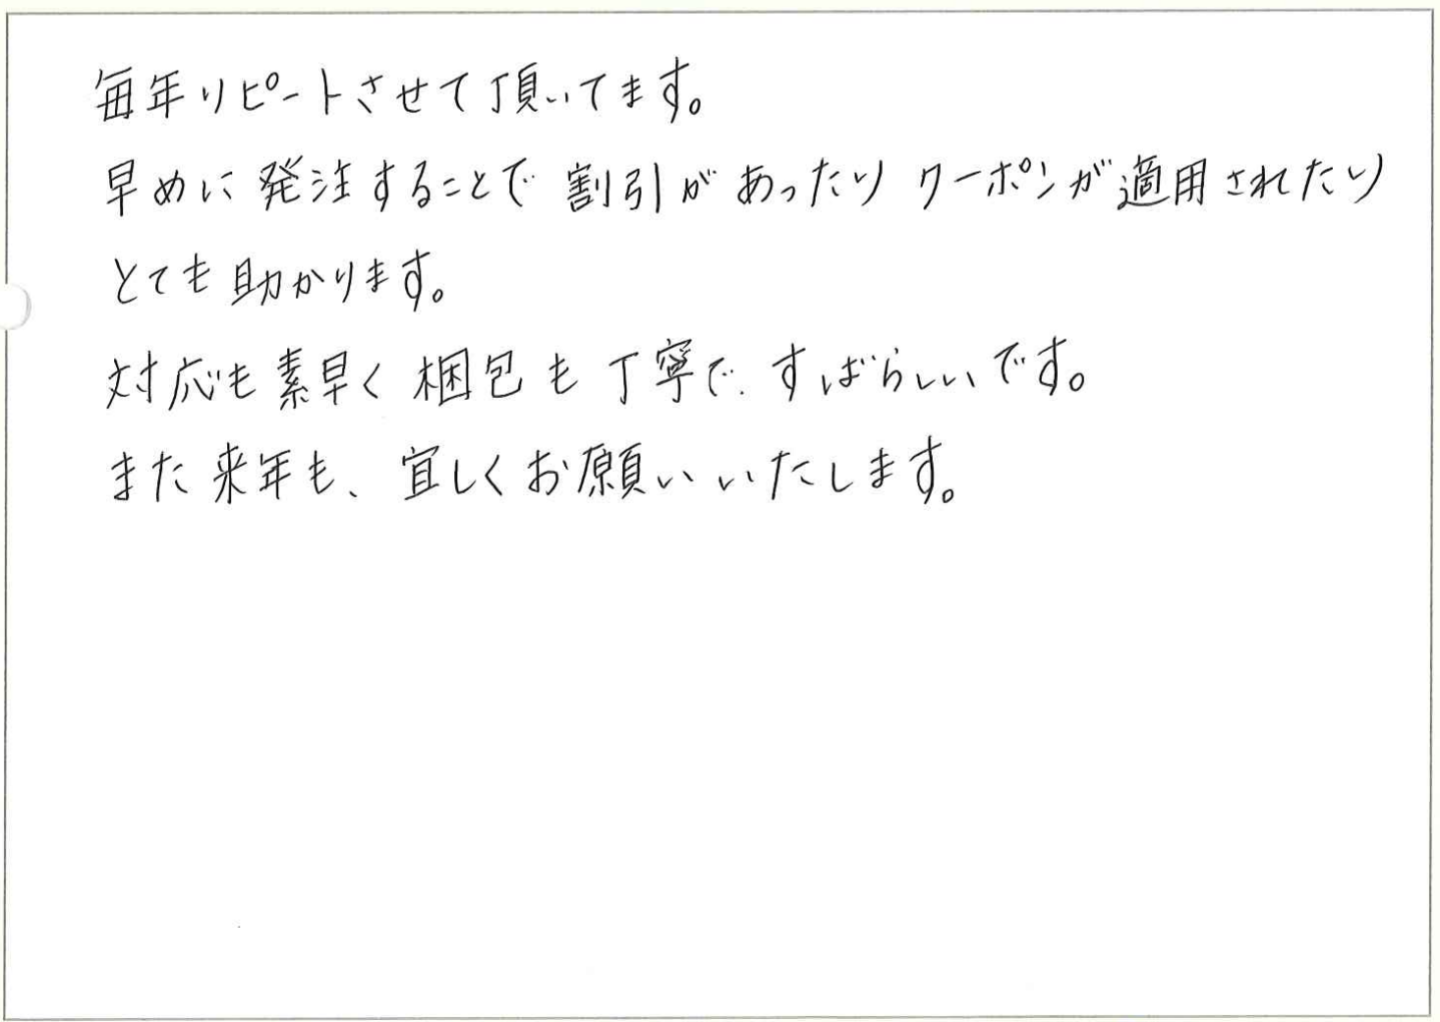 毎年リピートさせて頂いてます。
早めに発注することで割引があったりクーポンが適用されたり
とても助かります。
対応も素早く梱包も丁寧で、すばらしいです。
また来年も、宜しくお願いいたします。